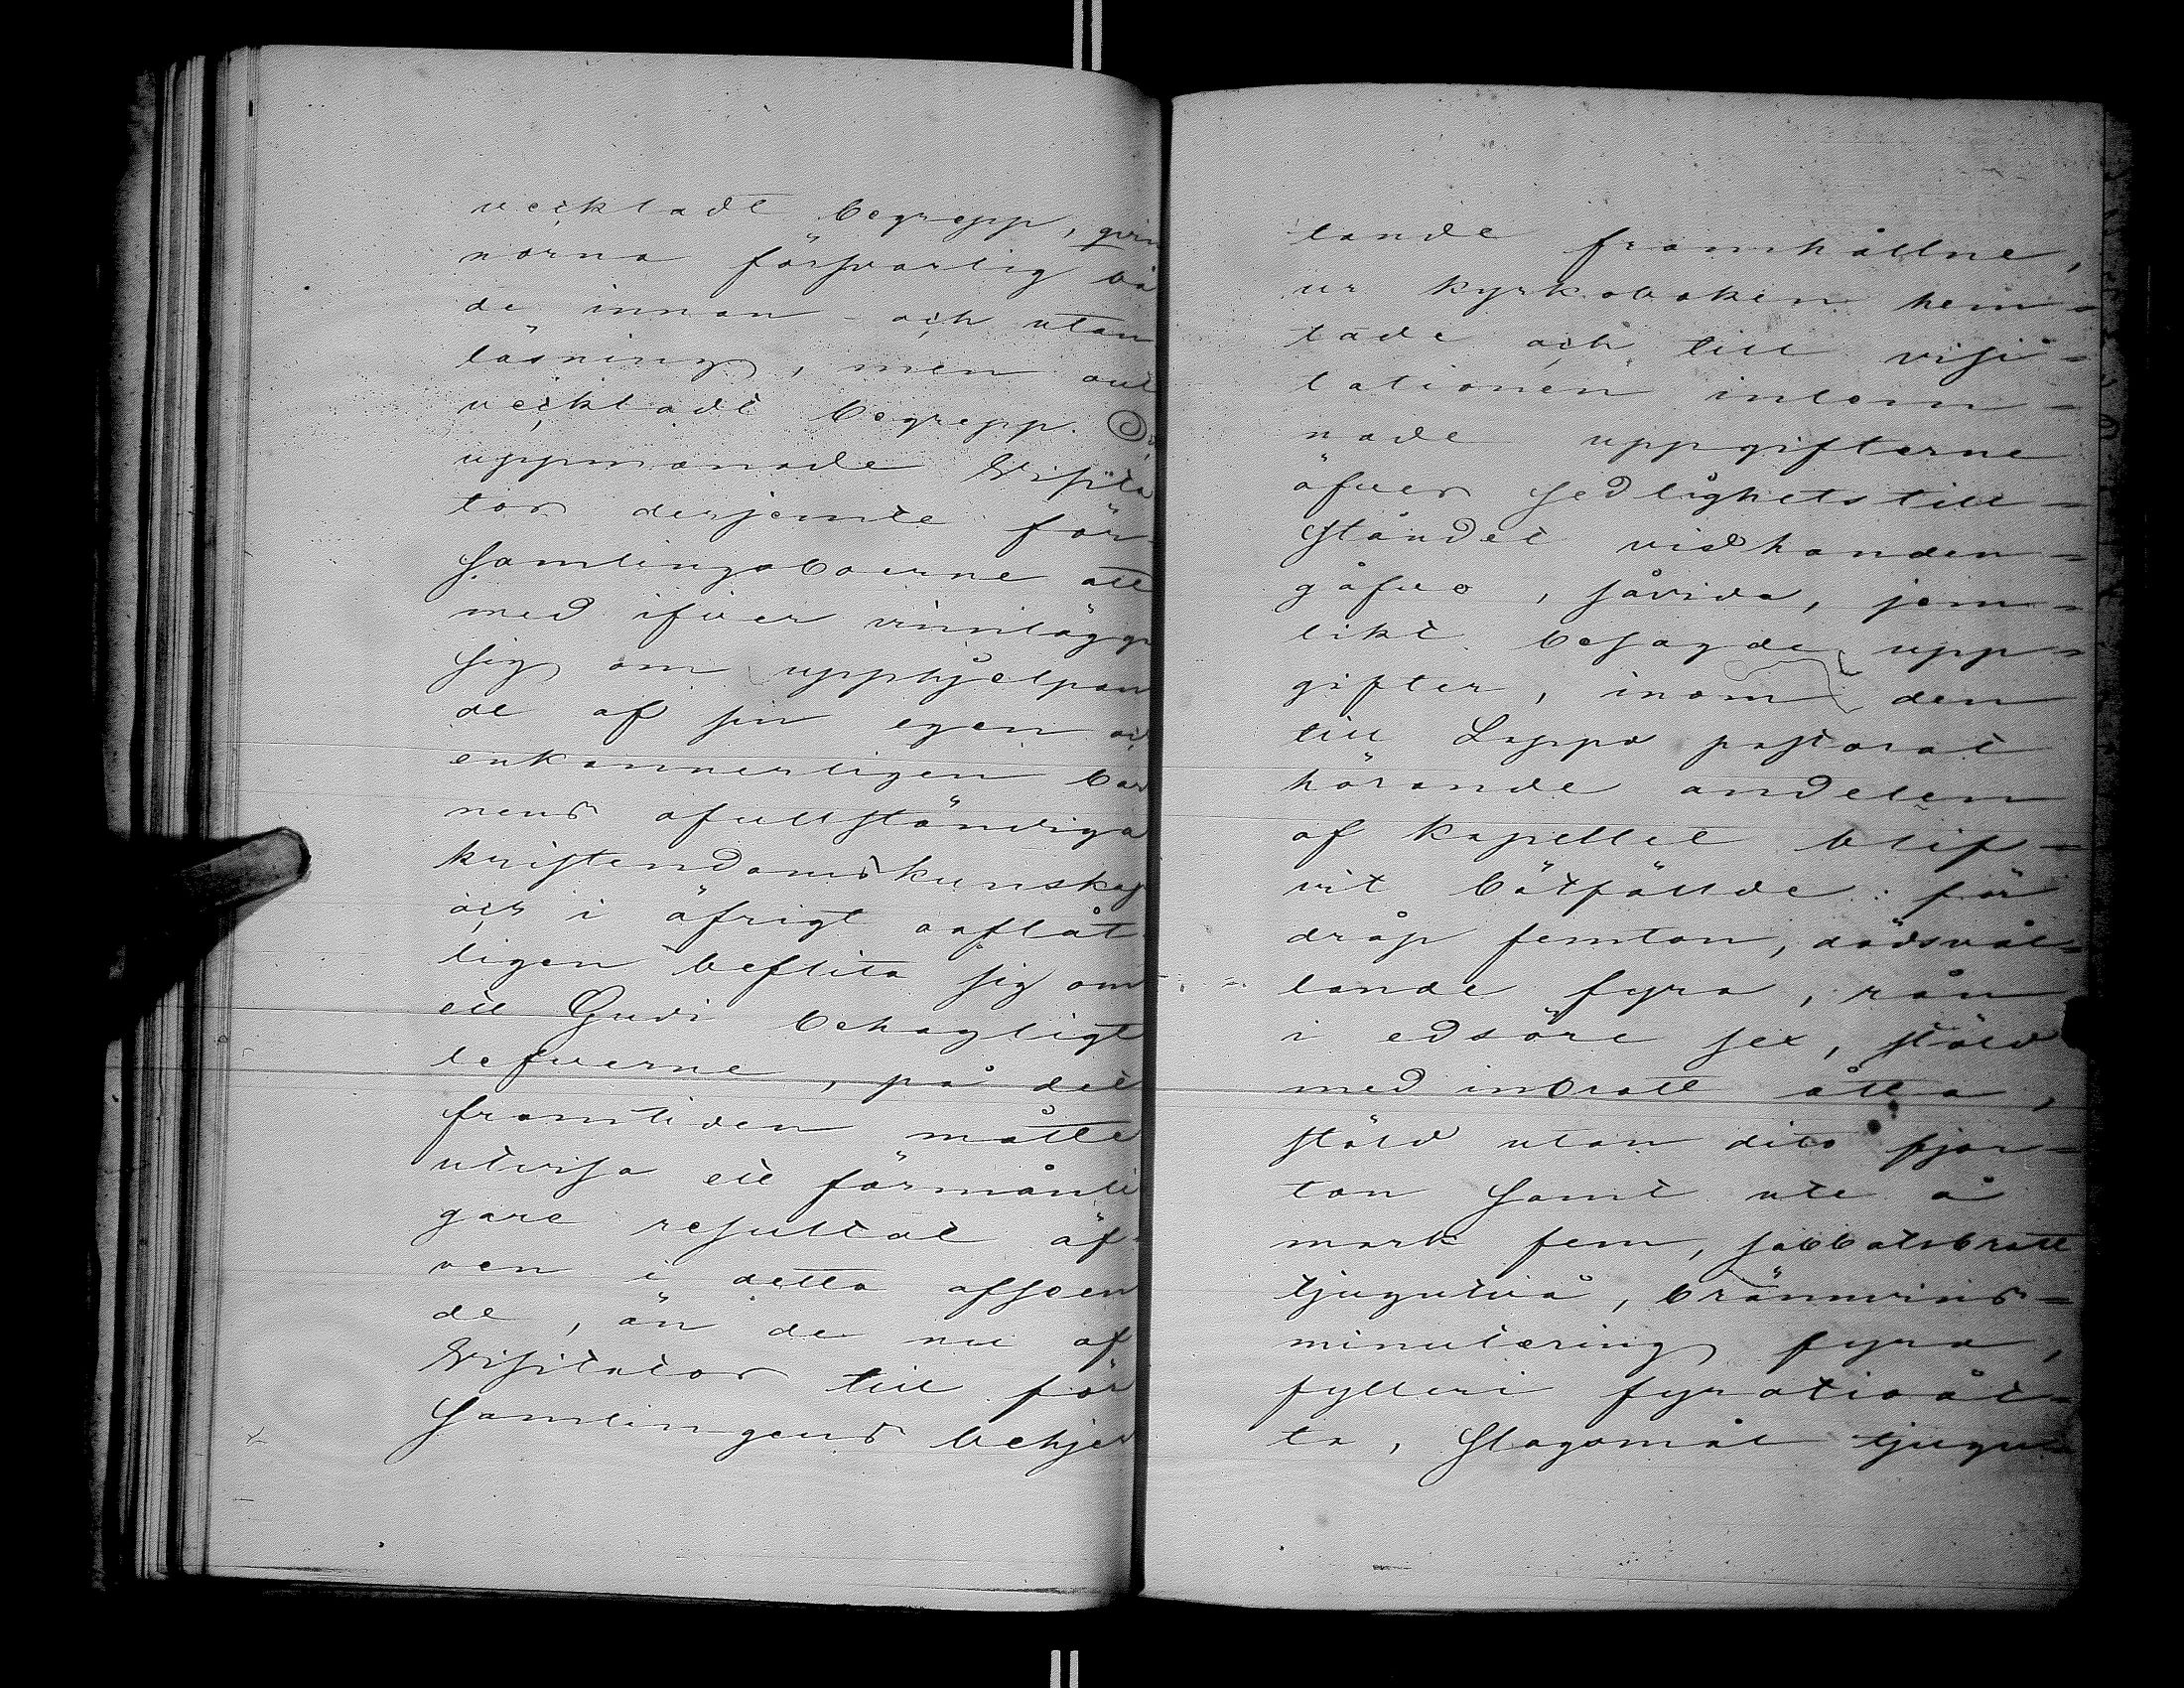 vecktadt begrepp, qvin
norna försvarlig bå
de innan- och utan
läsning, men out
vecktadt begrepp. Du
uppmanade Visita
tor derjemte för-
samlingsboerne att
med ifver vinnlägga
sig om upphjelpan
de af sin egen och
enkannerligen bar
nens ofullständiga
kristendomskunskap
och i öfrigt oaflåt-
ligen beflita sig om
ett Gudi behagligt
lefverne, på det
framtiden måtte
utvisa ett förmånli
gare resultat äf-
ven i detta afseen
de, än de nu af
Visitator till för
samlingens behjer
tande framhållne,
ur kyrkoboken hem=
tade och till visi=
tationen inlem=
nade uppgifterne
öfver sedlighetstill=
ståndet vidhanden=
gåfvo, såvida, jem=
likt besagde upp=
gifter, inom den
till Lappo pastorat
hörande andelen
af kapellet blif=
vit bötfällde: för
dråp femton, dödsvål=
lande fyra, rån
i edsöre sex, stöld
med inbrott åtta,
stöld utan dito fjor=
ton samt ute å
mark fem, sabbatsbrott
tjugutvå, brännvins=
minutering fyra,
fylleri fyratioåt=
ta, slagsmål tjugu=